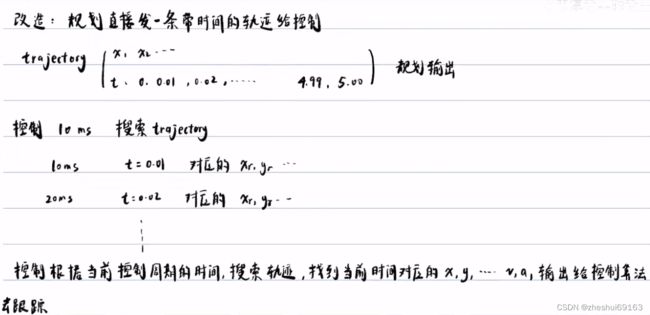 改进：规划直接发一条带时间的轨迹给控制
trajectory ( x₁ x₂ ...
t. 0. 0.01 , 0.02 , ...... 4.99, 5.00 ) 规划输出
控制 10 ms 搜索 trajectory
10ms t=0.01 对应的 xr, yr ...
20ms t=0.02 对应的 xr, yr ...
控制根据当前控制周期的时间, 搜索轨迹, 找到当前时间对应的 x, y, ... v, a, 输出给控制算法
去跟踪
CSDN @zheshui69163